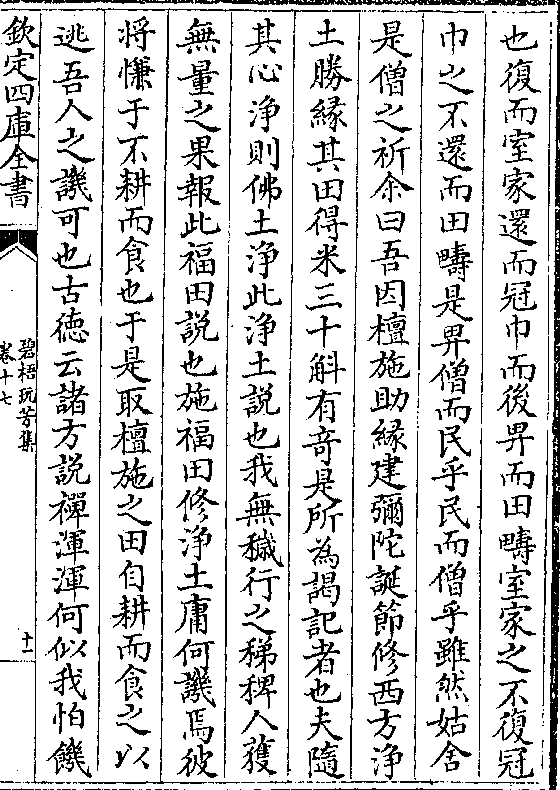 也復而室家還而冠巾而後畀而田疇室家之不復冠
巾之不還而田疇是畀僧而民乎民而僧乎雖然姑舍
是僧之祈余曰吾因檀施助緣建彌陀誕節修西方淨
土勝緣其田得米三十斛有竒是所為謁記者也夫隨
其心淨則佛土淨此淨土說也我無穢行之稊稗人獲
無量之果報此福田說也施福田修淨土庸何譏焉彼
將慊于不耕而食也于是取檀施之田自耕而食之以
逃吾人之譏可也古徳云諸方說禪渾渾何似我怕饑
欽定四庫全書
碧梧玩芳集
卷十七
十一